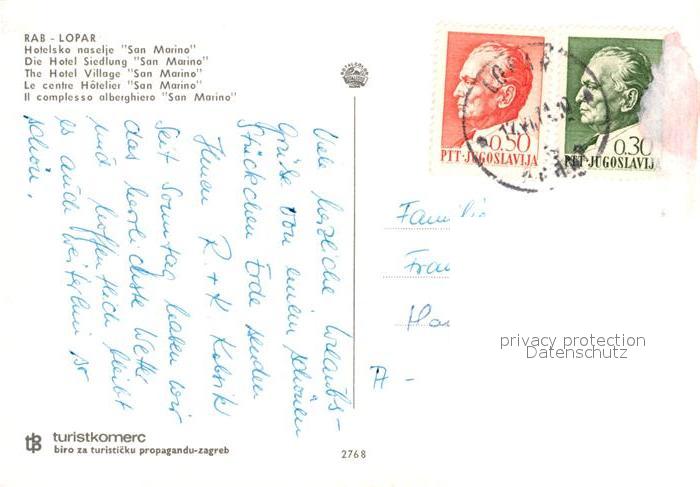 RAB - LOPAR
Hotelsko naselje "San Marino"
Die Hotel Siedlung "San Marino"
The Hotel Village "San Marino"
Le centre Hôtelier "San Marino"
Il complesso alberghiero "San Marino"
Viele herzliche Urlaubs-
grüße von einem schönen
Stückchen Erde senden
Ihnen R. + K.
Seit Sonntag haben wir
das herrlichste Wetter
und hoffentlich bleibt
es auch weiterhin so
schön.
0.50
PTT-JUGOSLAVIJA
0.30
PTT-JUGOSLAVIJA
LOPAR
Famili
Frau
Ha
A -
privacy protection
Datenschutz
tB turistkomerc
biro za turističku propagandu-zagreb
2768